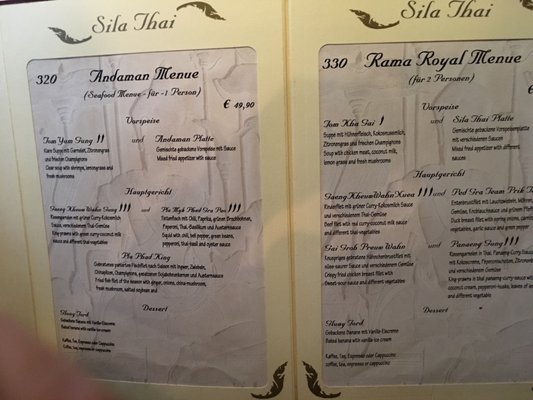 Sila Thai
320
Andaman Menue
(Seafood Menue - für -1 Person)
€ 49,90
Vorspeise
Tom Yum Gung
Klare Suppe mit Garnelen, Zitronengras
und frischen Champignons
Clear soup with shrimps, lemongrass and
fresh mushrooms
und
Andaman Platte
Gemischte gebackene Vorspeise mit Sauce
Mixed fried appetizer with sauce
Hauptgericht
Gaeng Kheuw Wahn Gung
Riesengarnelen mit grüner Curry-Kokosmilch
Sauce und verschiedenem Thai-Gemüse
King-prawns with green curry-coconut-milk
sauce and different thai-vegetables
und
Pla Myk Phad Gra Pau
Tintenfisch mit Chili, Paprika, grüner Brechbohnen,
Paporoni, Thai-Basilikum und Austernsauce
Squid with chili, bell peper, green beans,
peporoni, thai-basil and oyster sauce
Pla Phad King
Gebratenes
nach Saison mit Ingwer, Zwiebeln,
Chinapilzen, Champignons,
Sojabohnensauce und Austernsauce
Fried fish filet of the season with ginger, onions, china-mushroom,
fresh mushroom, salted soybean and
Dessert
Gluay Tord
Gebackene Banane mit Vanille-Eiscreme
Baked banana with vanilla ice cream
Kaffee, Tee, Espresso oder Cappuccino
Coffee, tea, espresso or cappuccino
Sila Thai
330
Rama Royal Menue
(für 2 Personen)
€
Vorspeise
Tom Kha Gai
Suppe mit Hühnerfleisch, Kokosnussmilch,
Zitronengras und frischen Champignons
Soup with chicken meat, coconut milk,
lemon grass and fresh mushrooms
und
Sila Thai Platte
Gemischte gebackene Vorspeisenplatte
mit verschiedenen Saucen
Mixed fried appetizer with different
sauces
Hauptgericht
Gaeng Kheuw Wahn Nuea
Rinderfilet mit grüner Curry-Kokosmilch Sauce
und verschiedenem Thai-Gemüse
Beef filet with green curry-coconut-milk sauce
and different thai-vegetables
und
Ped Gra Team Prik T
Entenbrustfilet mit Lauchzwiebeln, Möhren,
Gemüse, Knoblauchsauce und grünem Pfeffer
Duck breast filet with spring onions, carrots,
vegetables, garlic sauce and green pepper
Gai Grob Preuw Wahn
Knuspriges gebratenes Hähnchenbrustfilet mit
süss-saurer Sauce und verschiedenem Gemüse
Crispy fried chicken breast filet with
Sweet-sour sauce and different vegetables
und
Panaeng Gung
Riesengarnelen in Thai, Panaeng-Curry-Sauce
mit Kokoscreme, Peperonischoten, Zitronen
und verschiedenem Gemüse
King-prawns in thai panaeng-curry-sauce with
coconut cream, pepperoni-husks, leaves of lemon
and different vegetable
Dessert
Gluay Tord
Gebackene Banane mit Vanille-Eiscreme
Baked banana with vanilla ice cream
Kaffee, Tee, Espresso oder Cappuccino
coffee, tea, espresso or cappuccino